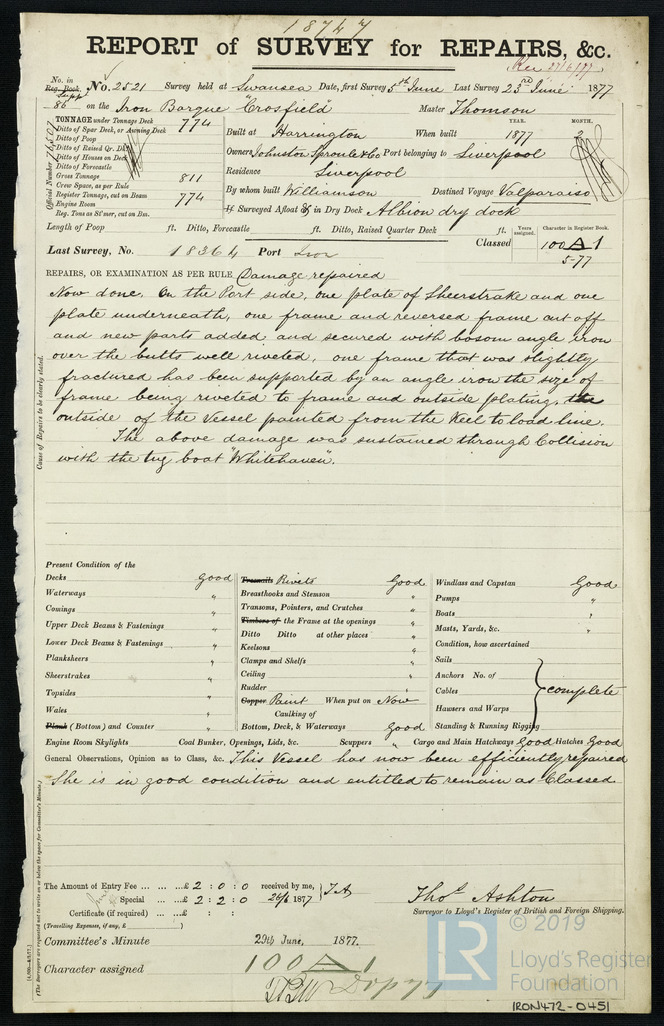 18747
REPORT of SURVEY for REPAIRS, &c.
Rec 27/6/77
No. in Reg. Book. No. 2521 Survey held at Swansea Date, first Survey 5th June Last Survey 23rd June 1877
Supp 86 on the Iron Barque Crosfield Master Thomson
TONNAGE under Tonnage Deck 774
Ditto of Spar Deck, or Awning Deck
Ditto of Poop
Ditto of Raised Qr. Dk
Ditto of Houses on Deck
Ditto of Forecastle
Gross Tonnage 811
Crew Space, as per Rule
Register Tonnage, cut on Beam 774
Engine Room
Reg. Tons as St'mer, cut on Bm.
Official Number 76507
YEAR. MONTH.
Built at Harrington When built 1877 2
Owners Johnston Sproule & Co Port belonging to Liverpool
Residence Liverpool
By whom built Williamson Destined Voyage Valparaiso
If Surveyed Afloat or in Dry Dock Albion dry dock
Length of Poop ft. Ditto, Forecastle ft. Ditto, Raised Quarter Deck ft.
Years assigned. Character in Register Book.
Last Survey, No. 18364 Port Iron Classed 100 A 1
5-77
REPAIRS, OR EXAMINATION AS PER RULE Damage repaired
Now done. On the Port side, one plate of Sheerstrake and one
plate underneath, one frame and reversed frame cut off
and new parts added and secured with bosom angle iron
over the butts well riveted, one frame that was slightly
fractured has been supported by an angle iron the size of
frame being riveted to frame and outside plating, the
outside of the Vessel painted from the Keel to load line.
The above damage was sustained through Collision
with the tug boat "Whitehaven".
Cause of Repairs to be clearly stated.
Present Condition of the
Decks Good
Waterways "
Comings "
Upper Deck Beams & Fastenings "
Lower Deck Beams & Fastenings "
Planksheers "
Sheerstrakes "
Topsides "
Wales "
Plank (Bottom) and Counter "
Treenails Rivets Good
Breasthooks and Stemson "
Transoms, Pointers, and Crutches "
Timbers of the Frame at the openings "
Ditto Ditto at other places "
Keelsons "
Clamps and Shelfs "
Ceiling "
Rudder "
Copper Paint When put on Now
Caulking of
Bottom, Deck, & Waterways Good
Windlass and Capstan Good
Pumps "
Boats "
Masts, Yards, &c. "
Condition, how ascertained
Sails
Anchors No. of
Cables complete
Hawsers and Warps
Standing & Running Rigging
Engine Room Skylights Coal Bunker, Openings, Lids, &c. Scuppers " Cargo and Main Hatchways Good Hatches Good
General Observations, Opinion as to Class, &c. This Vessel has now been efficiently repaired
She is in good condition and entitled to remain as Classed
The Amount of Entry Fee ... ... ...£ 2 : 0 : 0 received by me,
Special ... ...£ 2 : 2 : 0 26/6 1877 TA
Certificate (if required) ... ...£ : :
(Travelling Expenses, if any, £ )
Thos Ashton
Surveyor to Lloyd's Register of British and Foreign Shipping.
Committee's Minute 29th June, 1877.
Character assigned 100 A 1
© 2019
LR
Lloyd's Register
Foundation
IRON472-0451